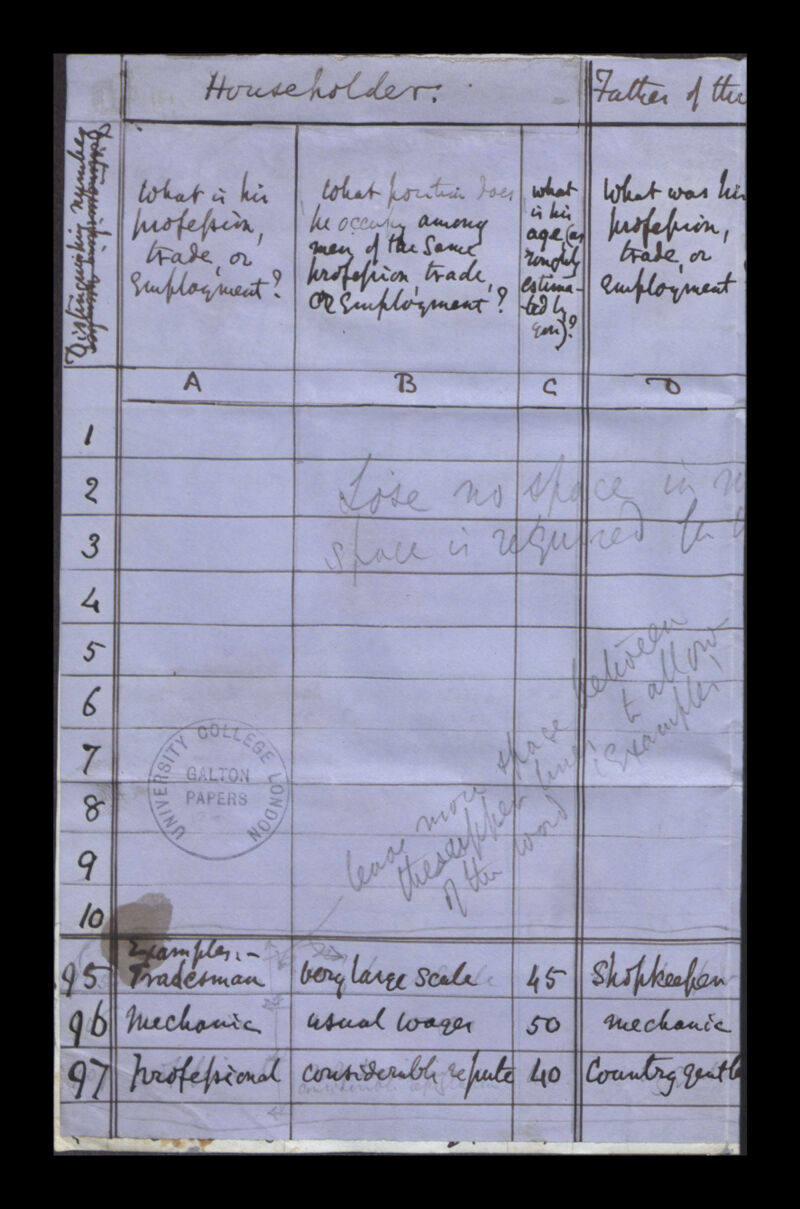 Householder. Father of the
Distinguishing number
What is his
profession,
trade, or
Employment?
What position does
he occupy among
men of the same
profession, trade,
or Employment?
what
is his
age, (as
roughly
estima-
ted by
you)?
What was his
profession,
trade, or
Employment
A B C D
1
2
3
4
5
6
7
8
9
10
Lose no space in
space is required for
leave more space between
these upper lines to allow
of the word Examples
UNIVERSITY COLLEGE LONDON
GALTON
PAPERS
Examples.–
95 Tradesman very large scale 45 Shopkeeper
96 Mechanic usual wages 50 mechanic
97 Professional considerable repute 40 Country gentle